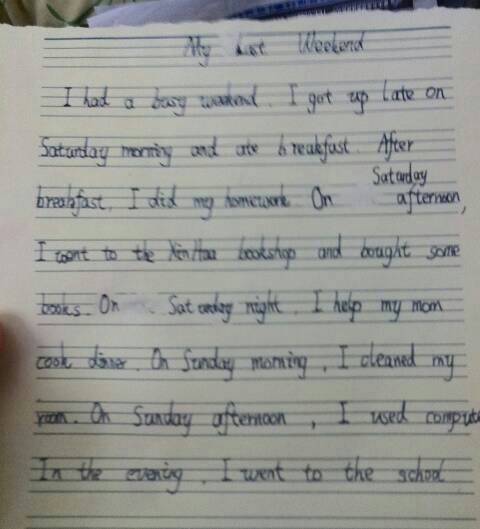 My last Weekend
I had a busy weekend. I got up late on
Saturday morning and ate breakfast. After
breakfast, I did my homework. On Saturday afternoon,
I went to the XinHua bookshop and bought some
books. On Saturday night, I help my mom
cook dinner. On Sunday morning, I cleaned my
room. On Sunday afternoon, I used
In the evening, I went to the school